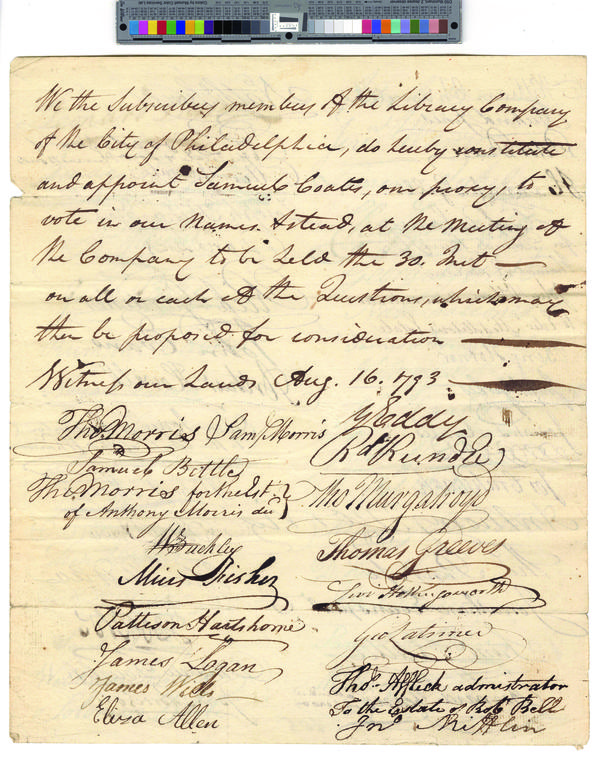 We the Subscribers members of the Library Company
of the City of Philadelphia, do hereby constitute
and appoint Samuel Coates, our proxy, to
vote in our Names & stead, at the Meeting of
the Company to be held the 30. Inst —
on all or each of the Questions, which may
then be proposed for consideration —
Witness our hands Aug. 16. 1793 —
Tho. Morris
Sam Morris
Samuel Bettle
Tho Morris for the Est
of Anthony Morris
W Buckley
Miers Fisher
Pattison Hartshorne
James Logan
James Wills
Eliza Allen
G Eddy
Rd Rundle
Tho Murgatroyd
Thomas Greeves
Levi Hollingsworth
Geo Latimer
Tho. Affleck admistrator
To the Estate of Rob Bell
Jno Mifflin